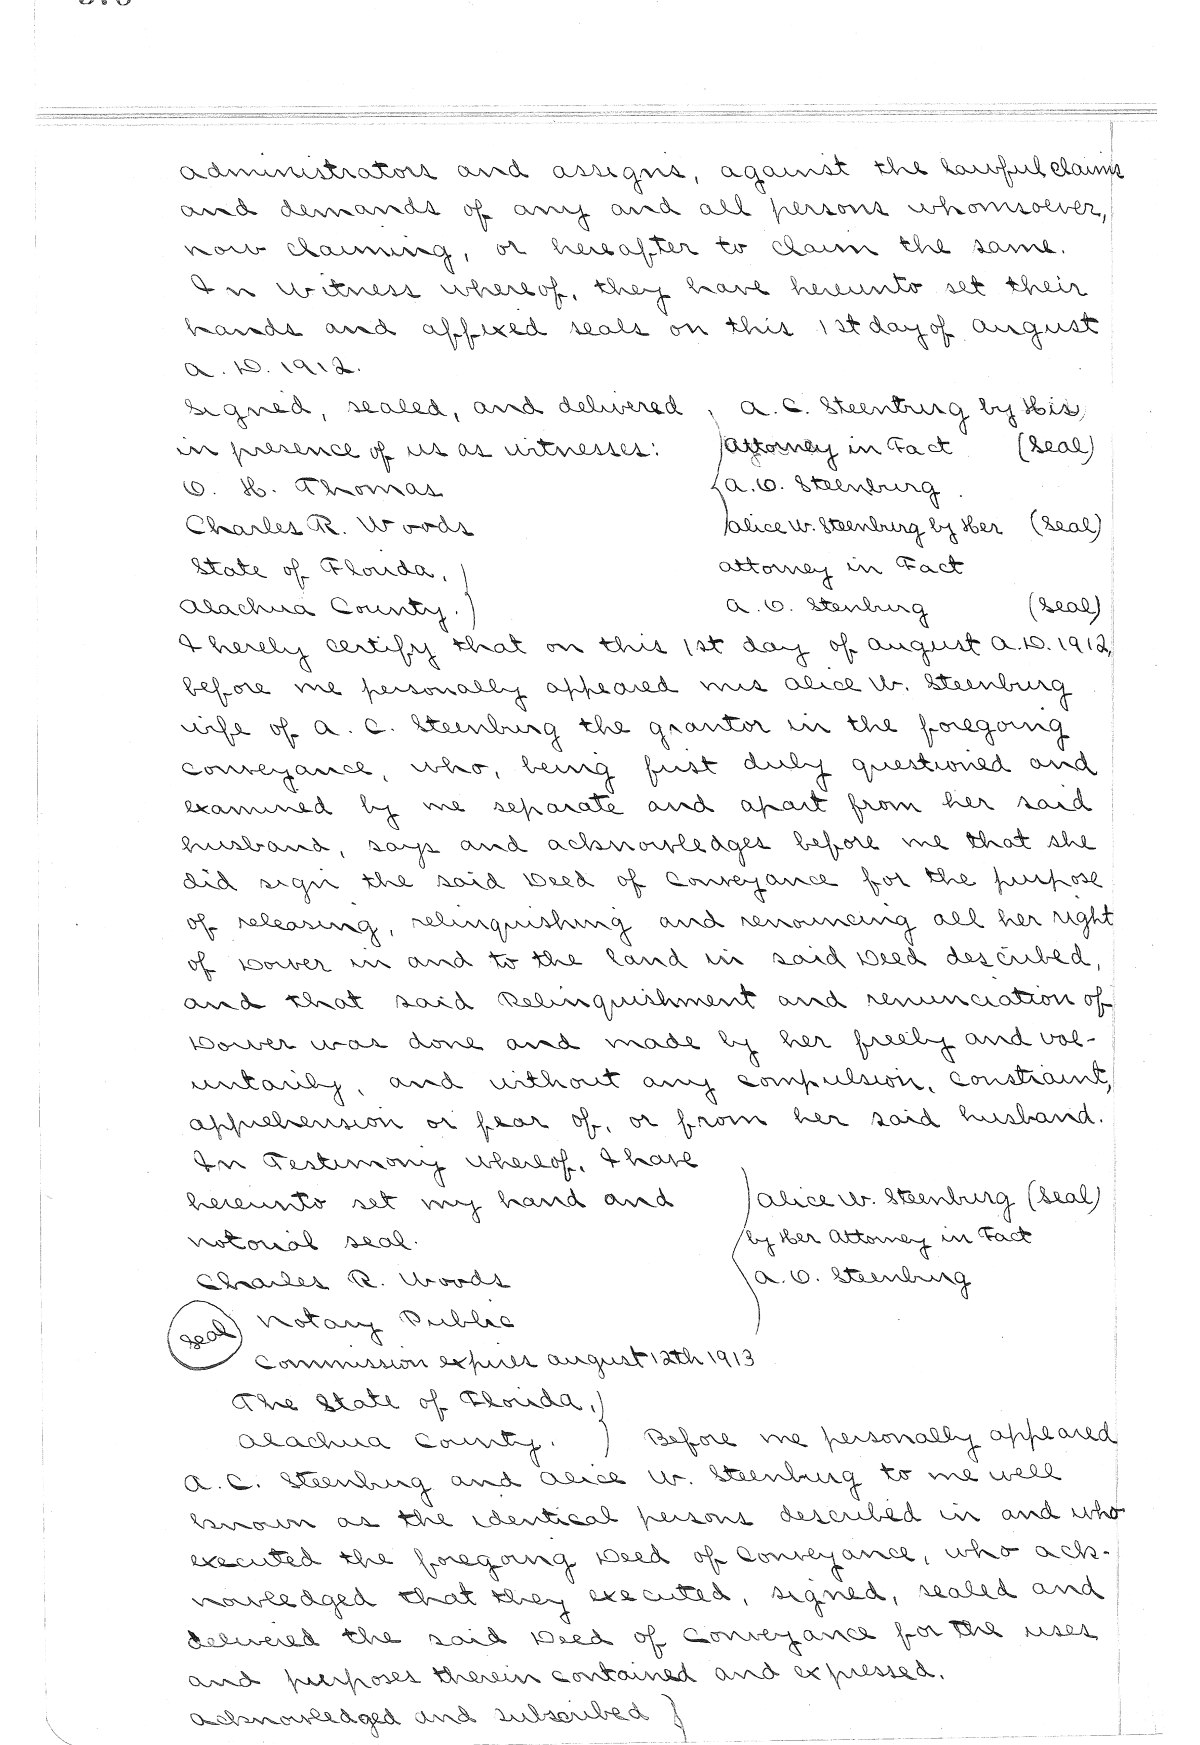 administrators and assigns, against the lawful claims
and demands of any and all persons whomsoever,
now claiming, or hereafter to claim the same.
In Witness whereof, they have hereunto set their
hands and affixed seals on this 1st day of august
a. D. 1912.
Signed, sealed, and delivered , A. C. Steenburg by His
in presence of us as witnesses: Attorney in Fact (Seal)
O. H. Thomas A. O. Steenburg.
Charles R. Woods Alice W. Steenburg by Her (Seal)
State of Florida, attorney in Fact
Alachua County. A. O. Stenburg (Seal)
I hereby certify that on this 1st day of august A.D. 1912,
before me personally appeared mrs Alice W. Steenburg
wife of A. C. Steenburg the grantor in the foregoing
conveyance, who, being first duly questioned and
examined by me separate and apart from her said
husband, says and acknowledges before me that she
did sign the said Deed of Conveyance for the purpose
of releasing, relinquishing and renouncing all her right
of Dower in and to the land in said Deed described,
and that said Relinquishment and renunciation of
Dower was done and made by her freely and vol-
untarily, and without any compulsion, constraint,
apprehension or fear of, or from her said husband.
In Testimony whereof, I have
hereunto set my hand and Alice W. Steenburg (Seal)
notorial seal. by Her Attorney in Fact
Charles R. Woods A. O. Steenburg
Seal Notary Public
Commission expires august 12th 1913
The State of Florida,
Alachua County. Before me personally appeared
A. C. Steenburg and Alice W. Steenburg to me well
known as the identical persons described in and who
executed the foregoing Deed of Conveyance, who ack-
nowledged that they executed, signed, sealed and
delivered the said Deed of Conveyance for the uses
and purposes therein contained and expressed.
acknowledged and subscribed